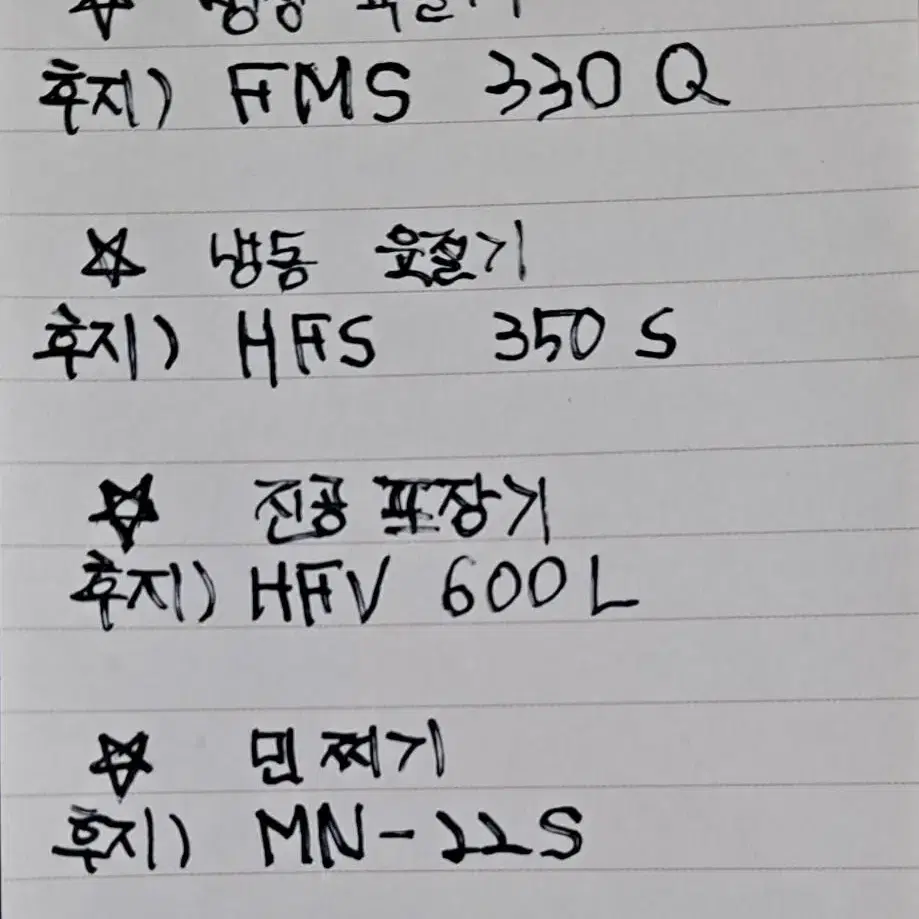 후지) FMS 330 Q
☆ 냉동 육절기
후지) HFS 350 S
☆ 진공 포장기
후지) HFV 600 L
☆ 민찌기
후지) MN-22S